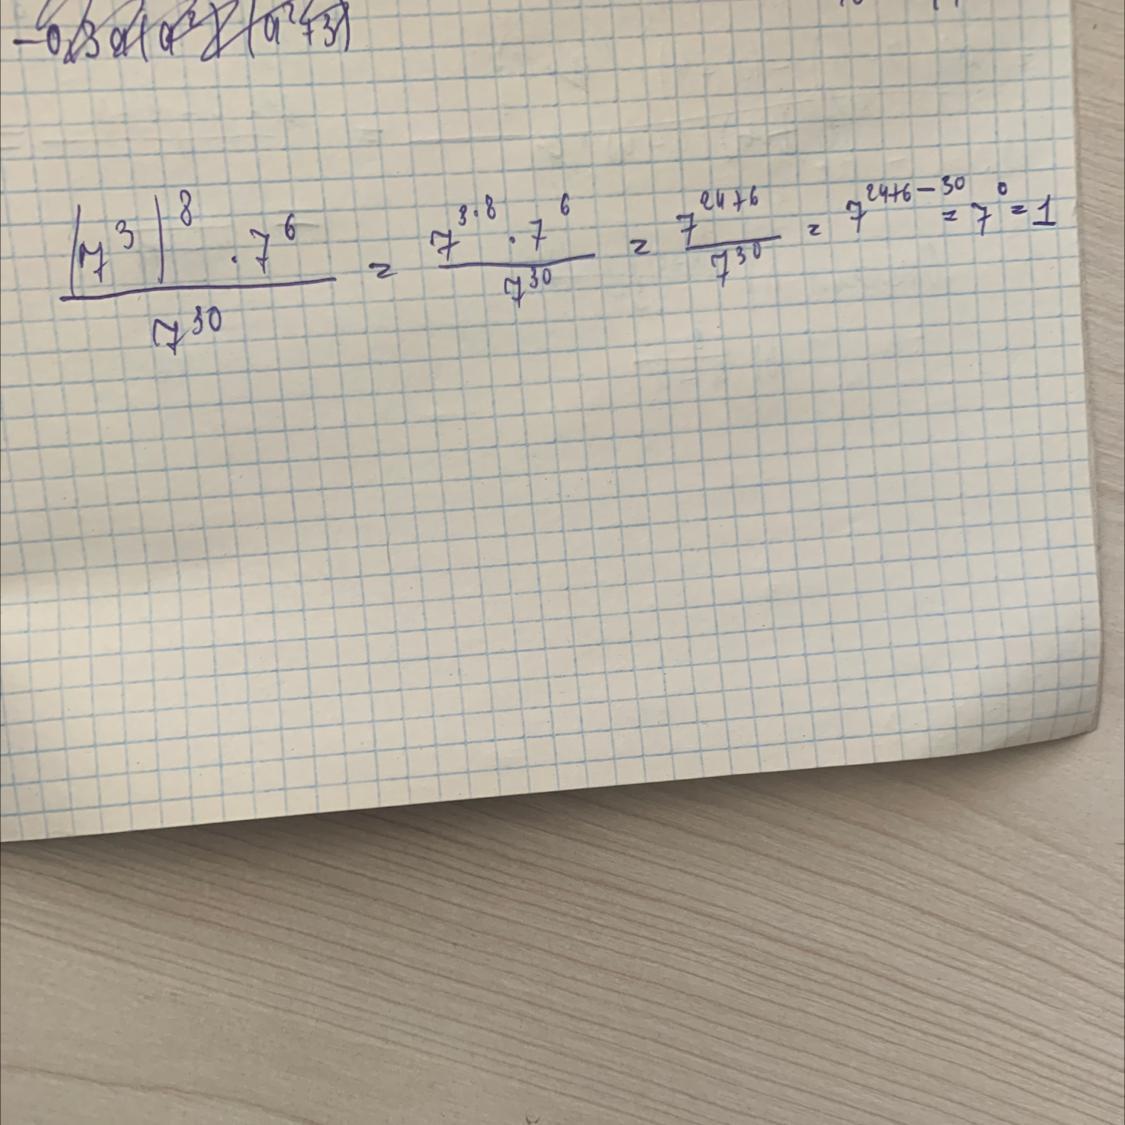 (7^3)^8 · 7^6 / 7^30 = 7^3·8 · 7^6 / 7^30 = 7^24+6 / 7^30 = 7^24+6-30 = 7^0 = 1